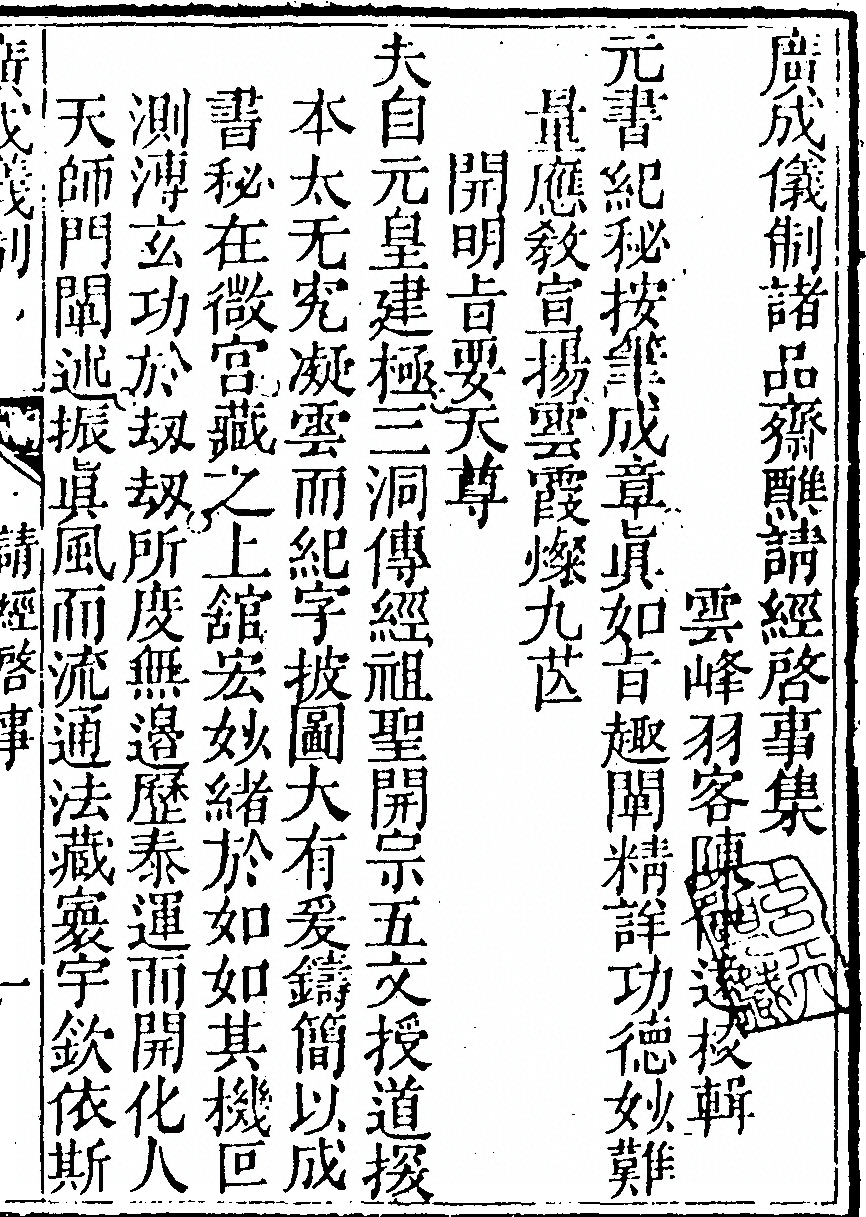 廣成儀制諸品齋醮請經啓事集
雲峰羽客陳仲遠挍輯
元書紀秘按筆成章眞如㫖趣闡精詳功德妙難
量應教宣揚雲霞燦九苂
開明㫖要天尊
夫自元皇建極三洞傳經祖聖開宗五文授道揆
本太无究凝雲而紀字披圖大有爰鑄簡以成
書秘在微宫藏之上舘宏妙緒於如如其機叵
測溥玄功於刼刼所度無邉歷泰運而開化人
天師門闡述振眞風而流通法藏寰宇欽依斯
廣成儀制
請經啓事
一